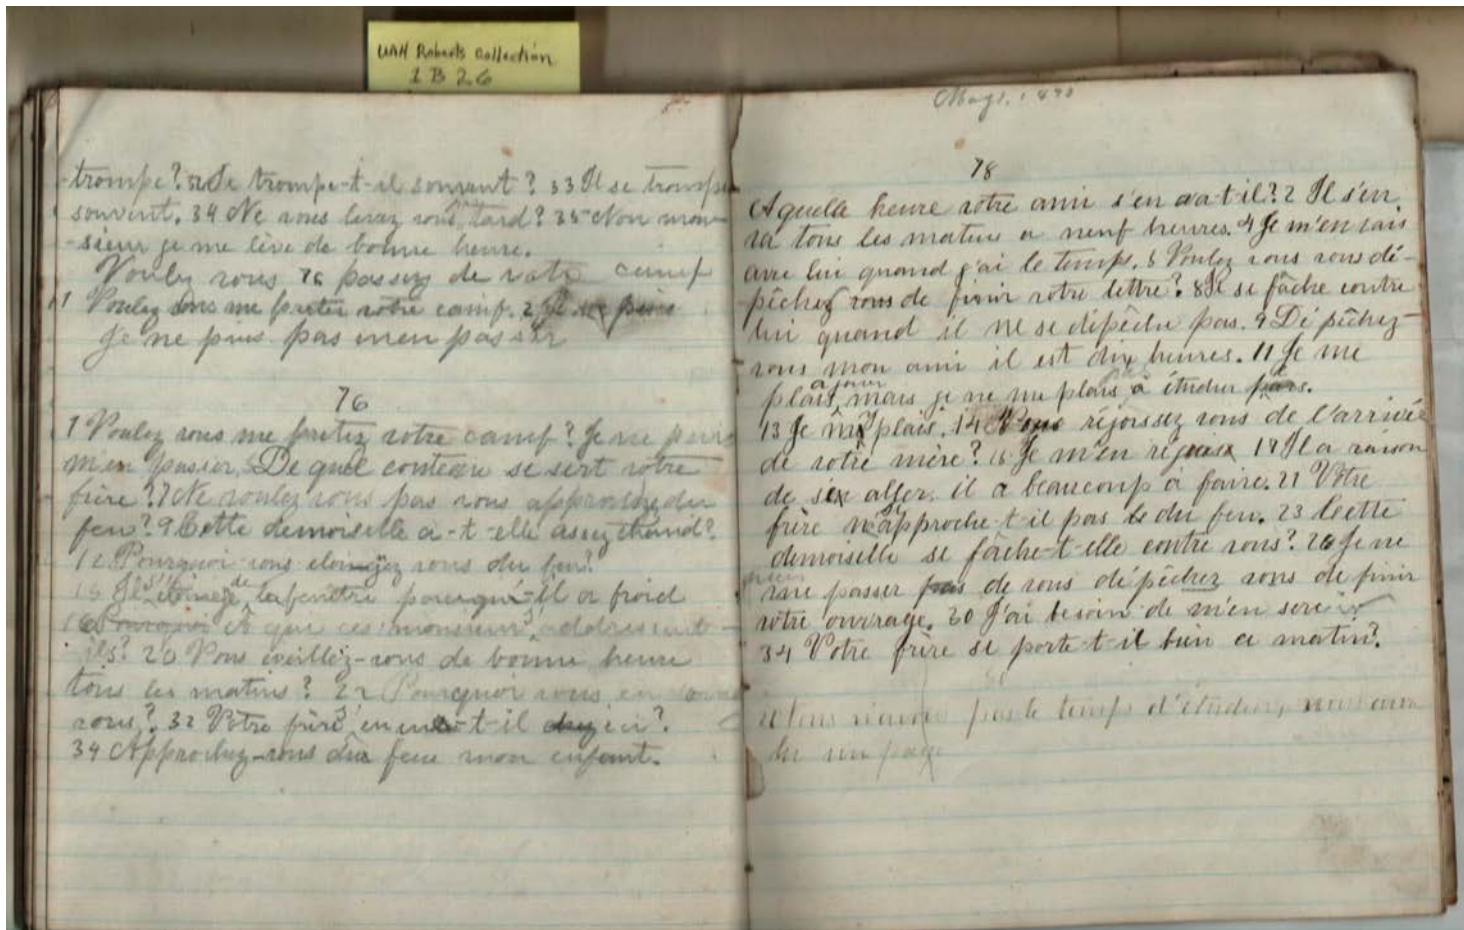 UAH Roberts Collection
1 B 26
trompe? Se trompe-t-il souvent? 33 Il se trompe
souvent. 34 Ne vous levez vous pas tard? 35 Non mon-
-sieur je me lève de bonne heure.
Voulez vous 76 passez de votre canif
1 Voulez vous me preter votre canif. 2 Je ne puis
Je ne puis pas m'en passer
76
1 Voulez vous me pretez votre canif? Je ne puis
m'en passer. De quel couteau se sert votre
frère? 7 Ne voulez vous pas vous approchez du
feu? 9 Cette demoiselle a-t-elle assez chaud?
12 Pourquoi vous eloingez vous du feu?
15 Il s'eloinge de la fenêtre parcequ'il a froid
16 Pourquoi A que ces monsieur s'addressent-
ils? 20 Vous éveillez-vous de bonne heure
tous les matins? 22 Pourquoi vous en
vous? 32 Votre frère s'en -t-il ici?
34 Approchez-vous du feu mon enfant.
May 1, 1890
78
A quelle heure votre ami s'en va-t-il? 2 Il s'en
va tous les matins a neuf heures. 4 Je m'en vais
avec lui quand j'ai le temps. 6 Voulez vous vous dé-
pêchez vous de finir votre lettre? 8 Il se fâche contre
lui quand il ne se dépêche pas. 9 Dépêchez-
vous mon ami il est dix heures. 11 Je me
plais à jouer mais je ne me plais pas à étudier pas.
13 Je m'y plais. 14 Vous réjoissez vous de l'arrivée
de votre mère? 15 Je m'en réjouis 19 Il a raison
de s'en aller. il a beaucoup à faire. 21 Votre
frère ne s'approche-t-il pas du feu. 23 Cette
demoiselle se fâche-t-elle contre vous? 26 Je ne
passer pas de vous dépêchez vous de finir
votre ouvrage. 30 J'ai besoin de m'en servir
34 Votre frère se porte-t-il bien ce matin?
pas le temps d'étudier, nous